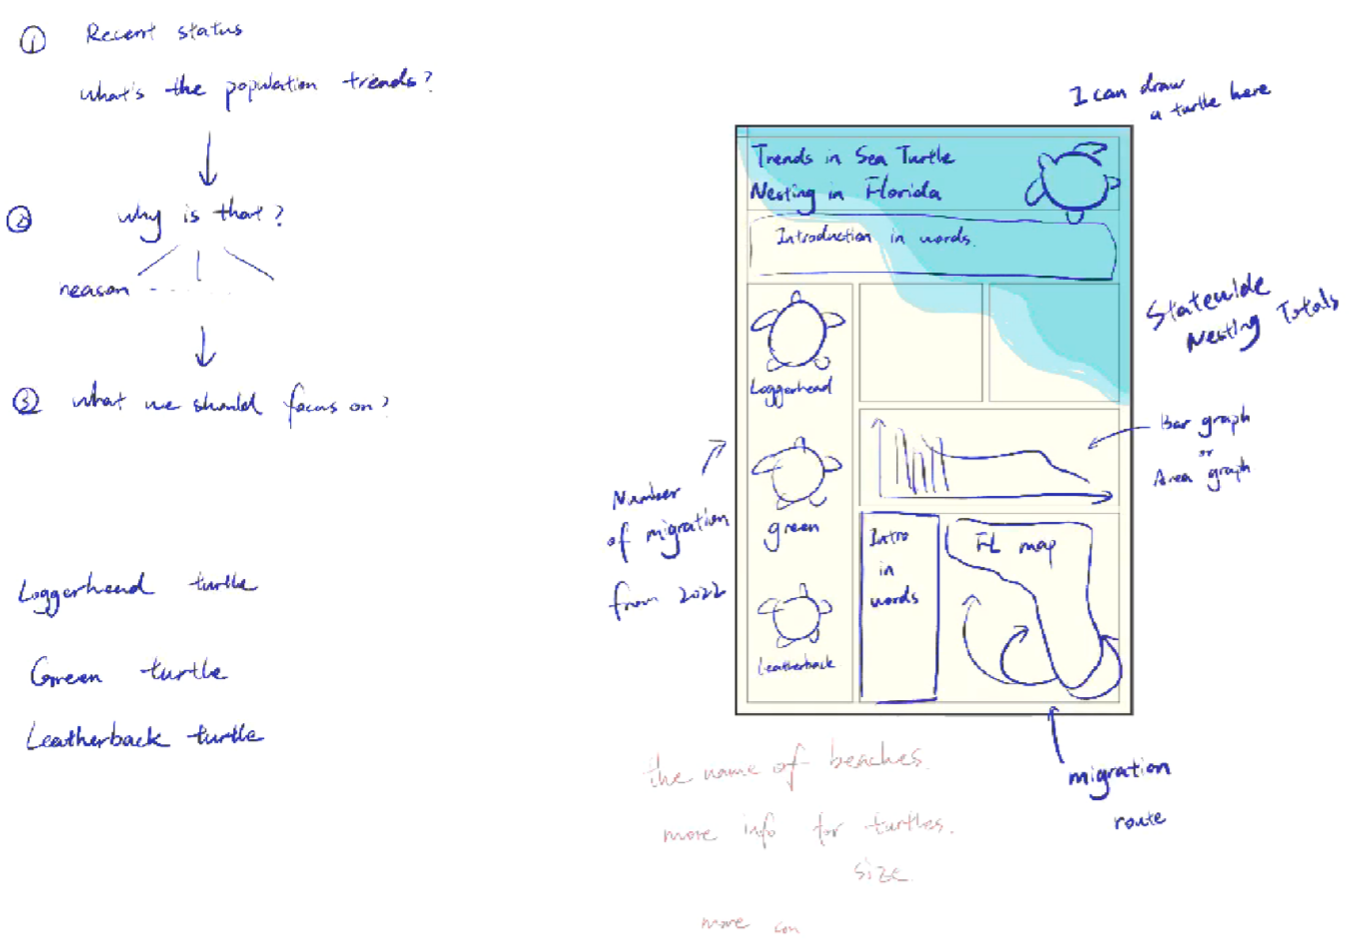 ① Recent status
what's the population trends?
② why is that?
reason
③ what we should focus on?
Loggerhead turtle
Green turtle
Leatherback turtle
I can draw
a turtle here
Trends in Sea Turtle
Nesting in Florida
Introduction in words.
Statewide
Nesting Totals
Loggerhead
green
Leatherback
Number
of migration
from 2022
Bar graph
or
Area graph
Intro
in
words
FL map
migration
route
the name of beaches.
more info for turtles.
size
more con